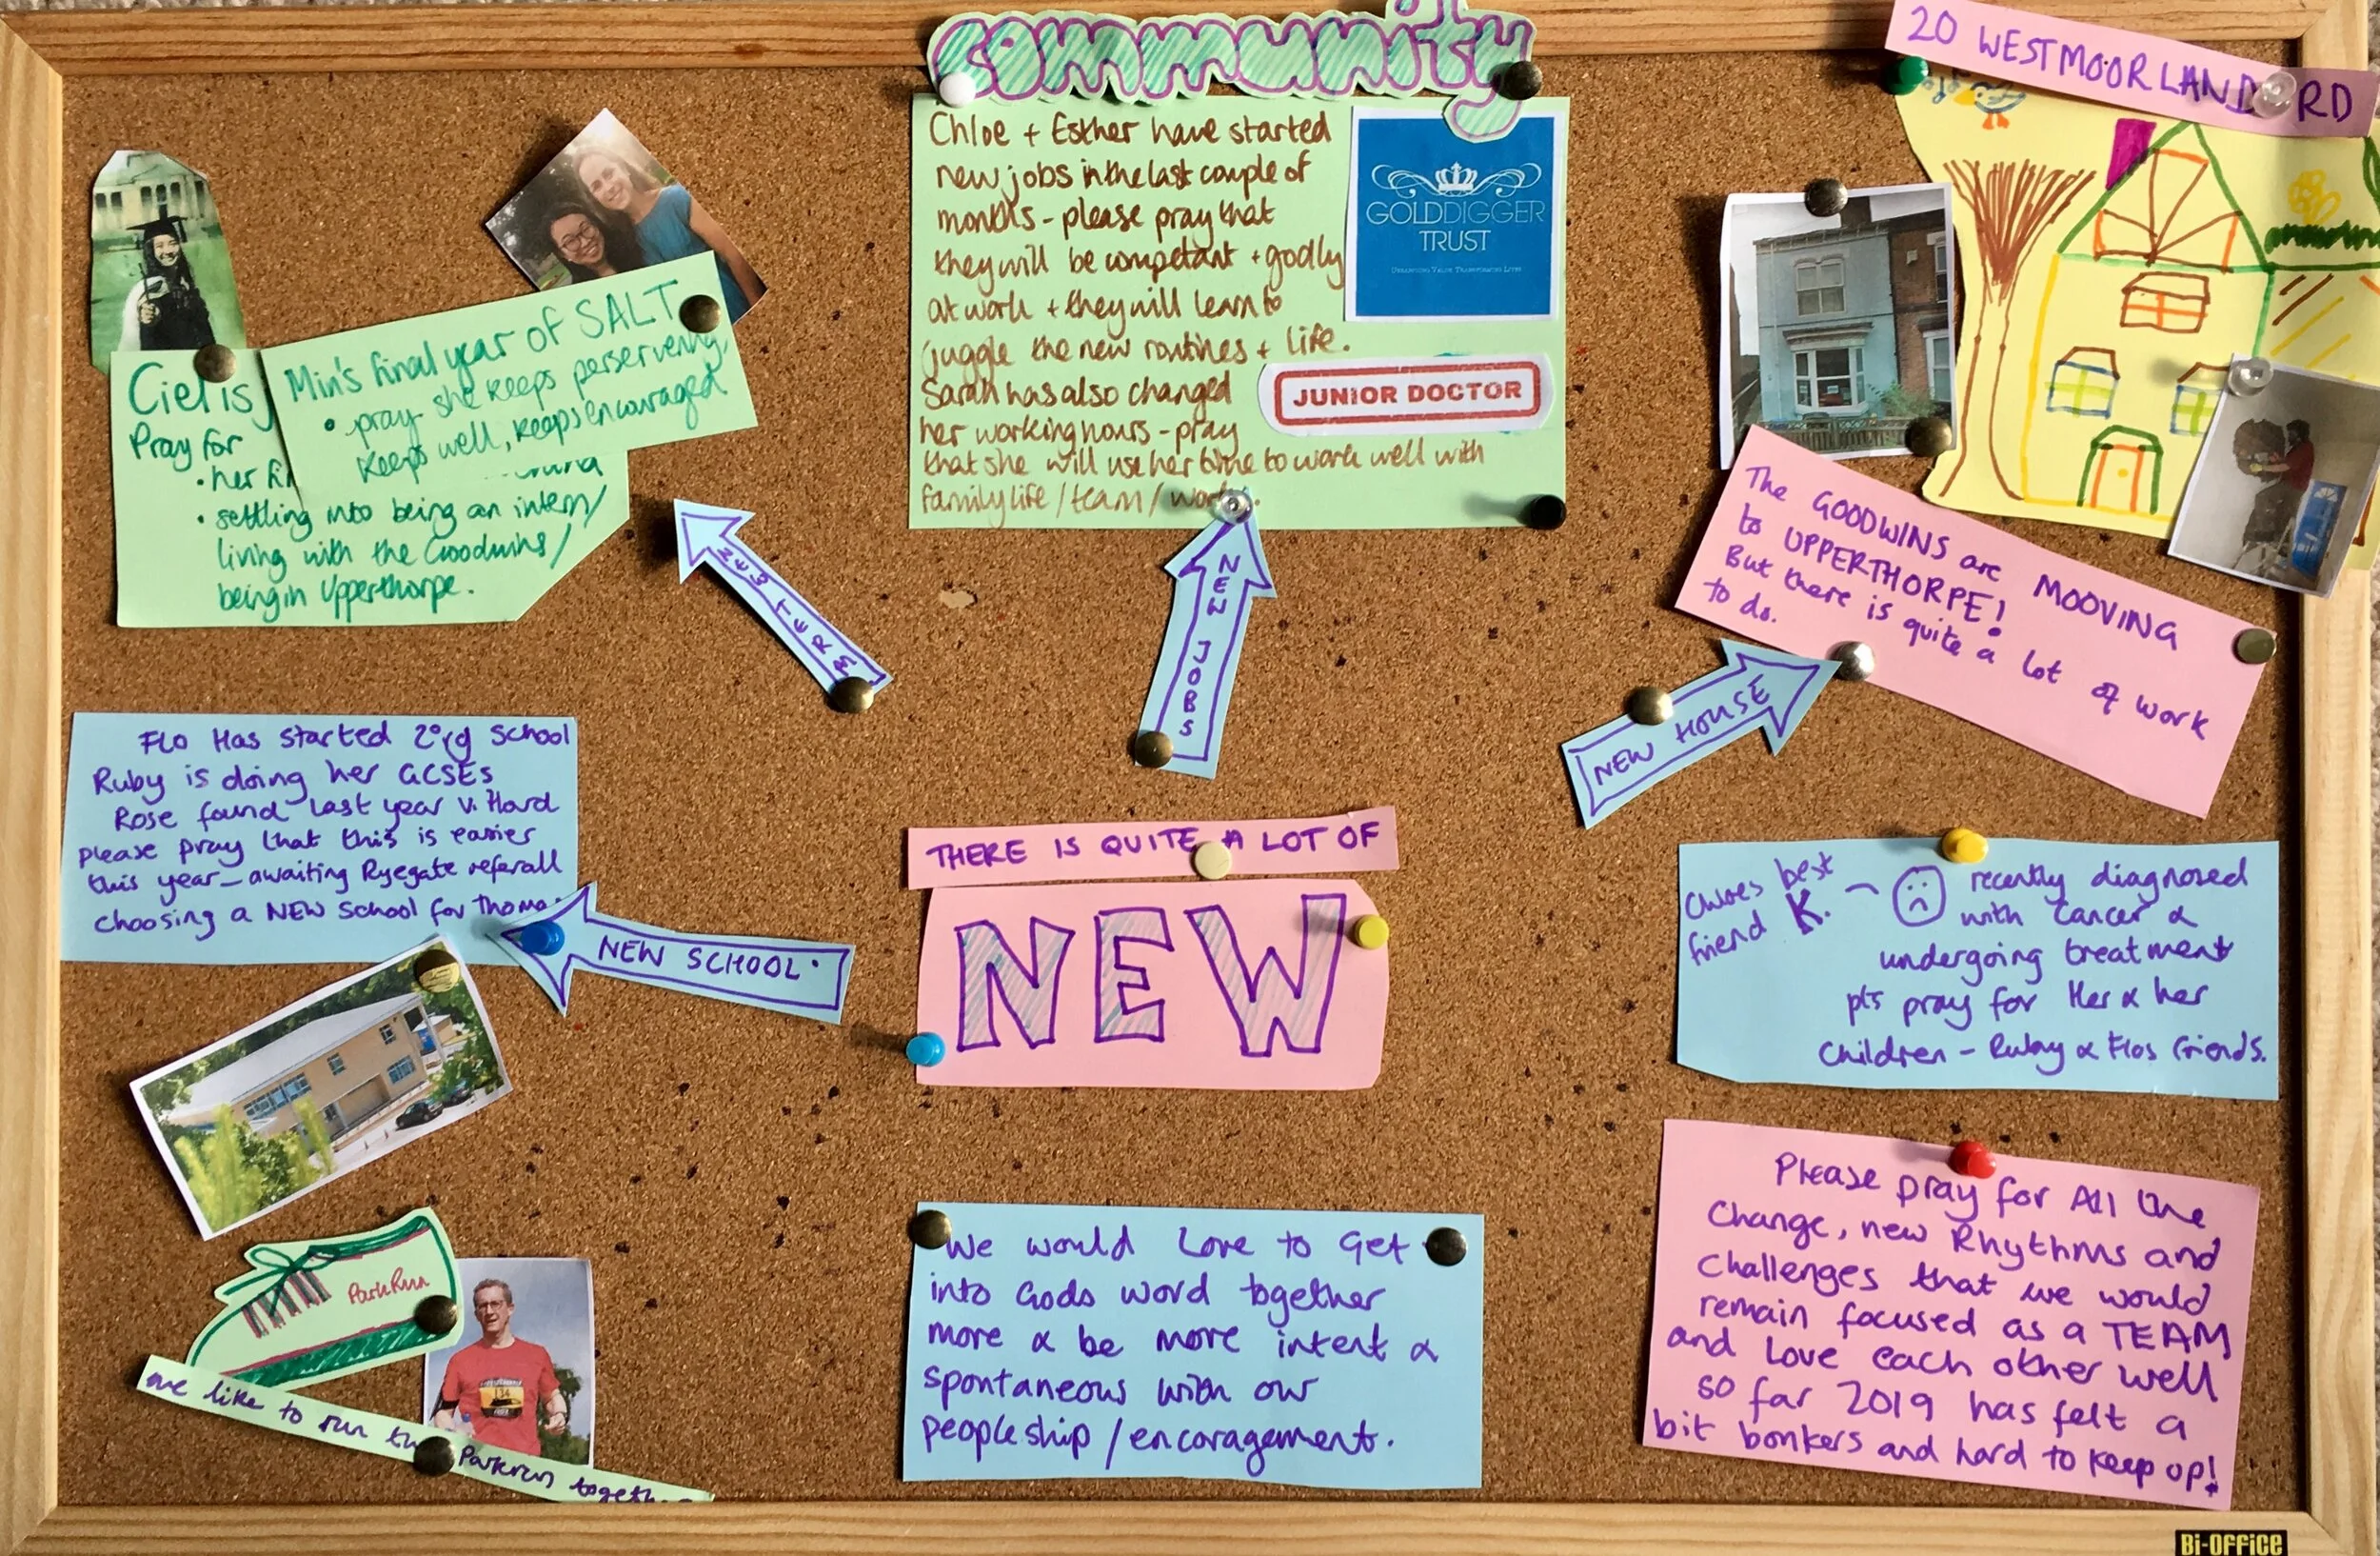 community
Chloe + Esther have started
new jobs in the last couple of
months - please pray that
they will be competant + godly
at work + they will learn to
juggle the new routines + life.
Sarah has also changed
her working hours - pray
that she will use her time to work well with
family life / team / work.
GOLDDIGGER
TRUST
JUNIOR DOCTOR
20 WESTMOORLAND RD
The GOODWINS are MOOVING
to UPPERTHORPE!
But there is quite a lot of work
to do.
Min's final year of SALT
• pray she keeps perservering,
keeps well, keeps encouraged
Ciel is
Pray for
• her
• settling into being an intern/
living with the Goodwins/
being in Upperthorpe.
NEW TERM
NEW JOBS
NEW HOUSE
NEW SCHOOL
Flo Has started 2ⁿrd School
Ruby is doing her GCSEs
Rose found last year v. Hard
please pray that this is easier
this year - awaiting Ryegate referall
choosing a NEW School for Thoma
THERE IS QUITE A LOT OF
NEW
Chloes best
friend K. - recently diagnosed
with cancer &
undergoing treatment
pls pray for Her & her
Children - Ruby & Flos friends.
ParkRun
we like to run the Parkrun together
134
We would Love to Get
into Gods word together
more & be more intent &
spontaneous with our
peopleship / encoragement.
Please pray for All the
Change, new Rhythms and
Challenges that we would
remain focused as a TEAM
and Love each other well
so far 2019 has felt a
bit bonkers and hard to keep up!
Bi-OFFiCE